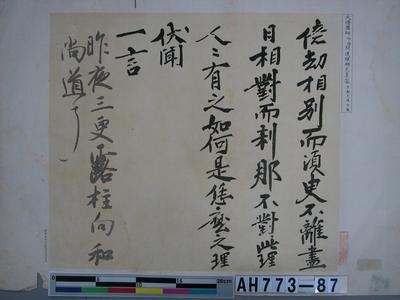 億劫相別而須臾不離盡
日相對而刹那不對此理
人々有之如何是恁麼之理
伏聞
一言
昨夜三更露柱向和
尚道了
AH773-87